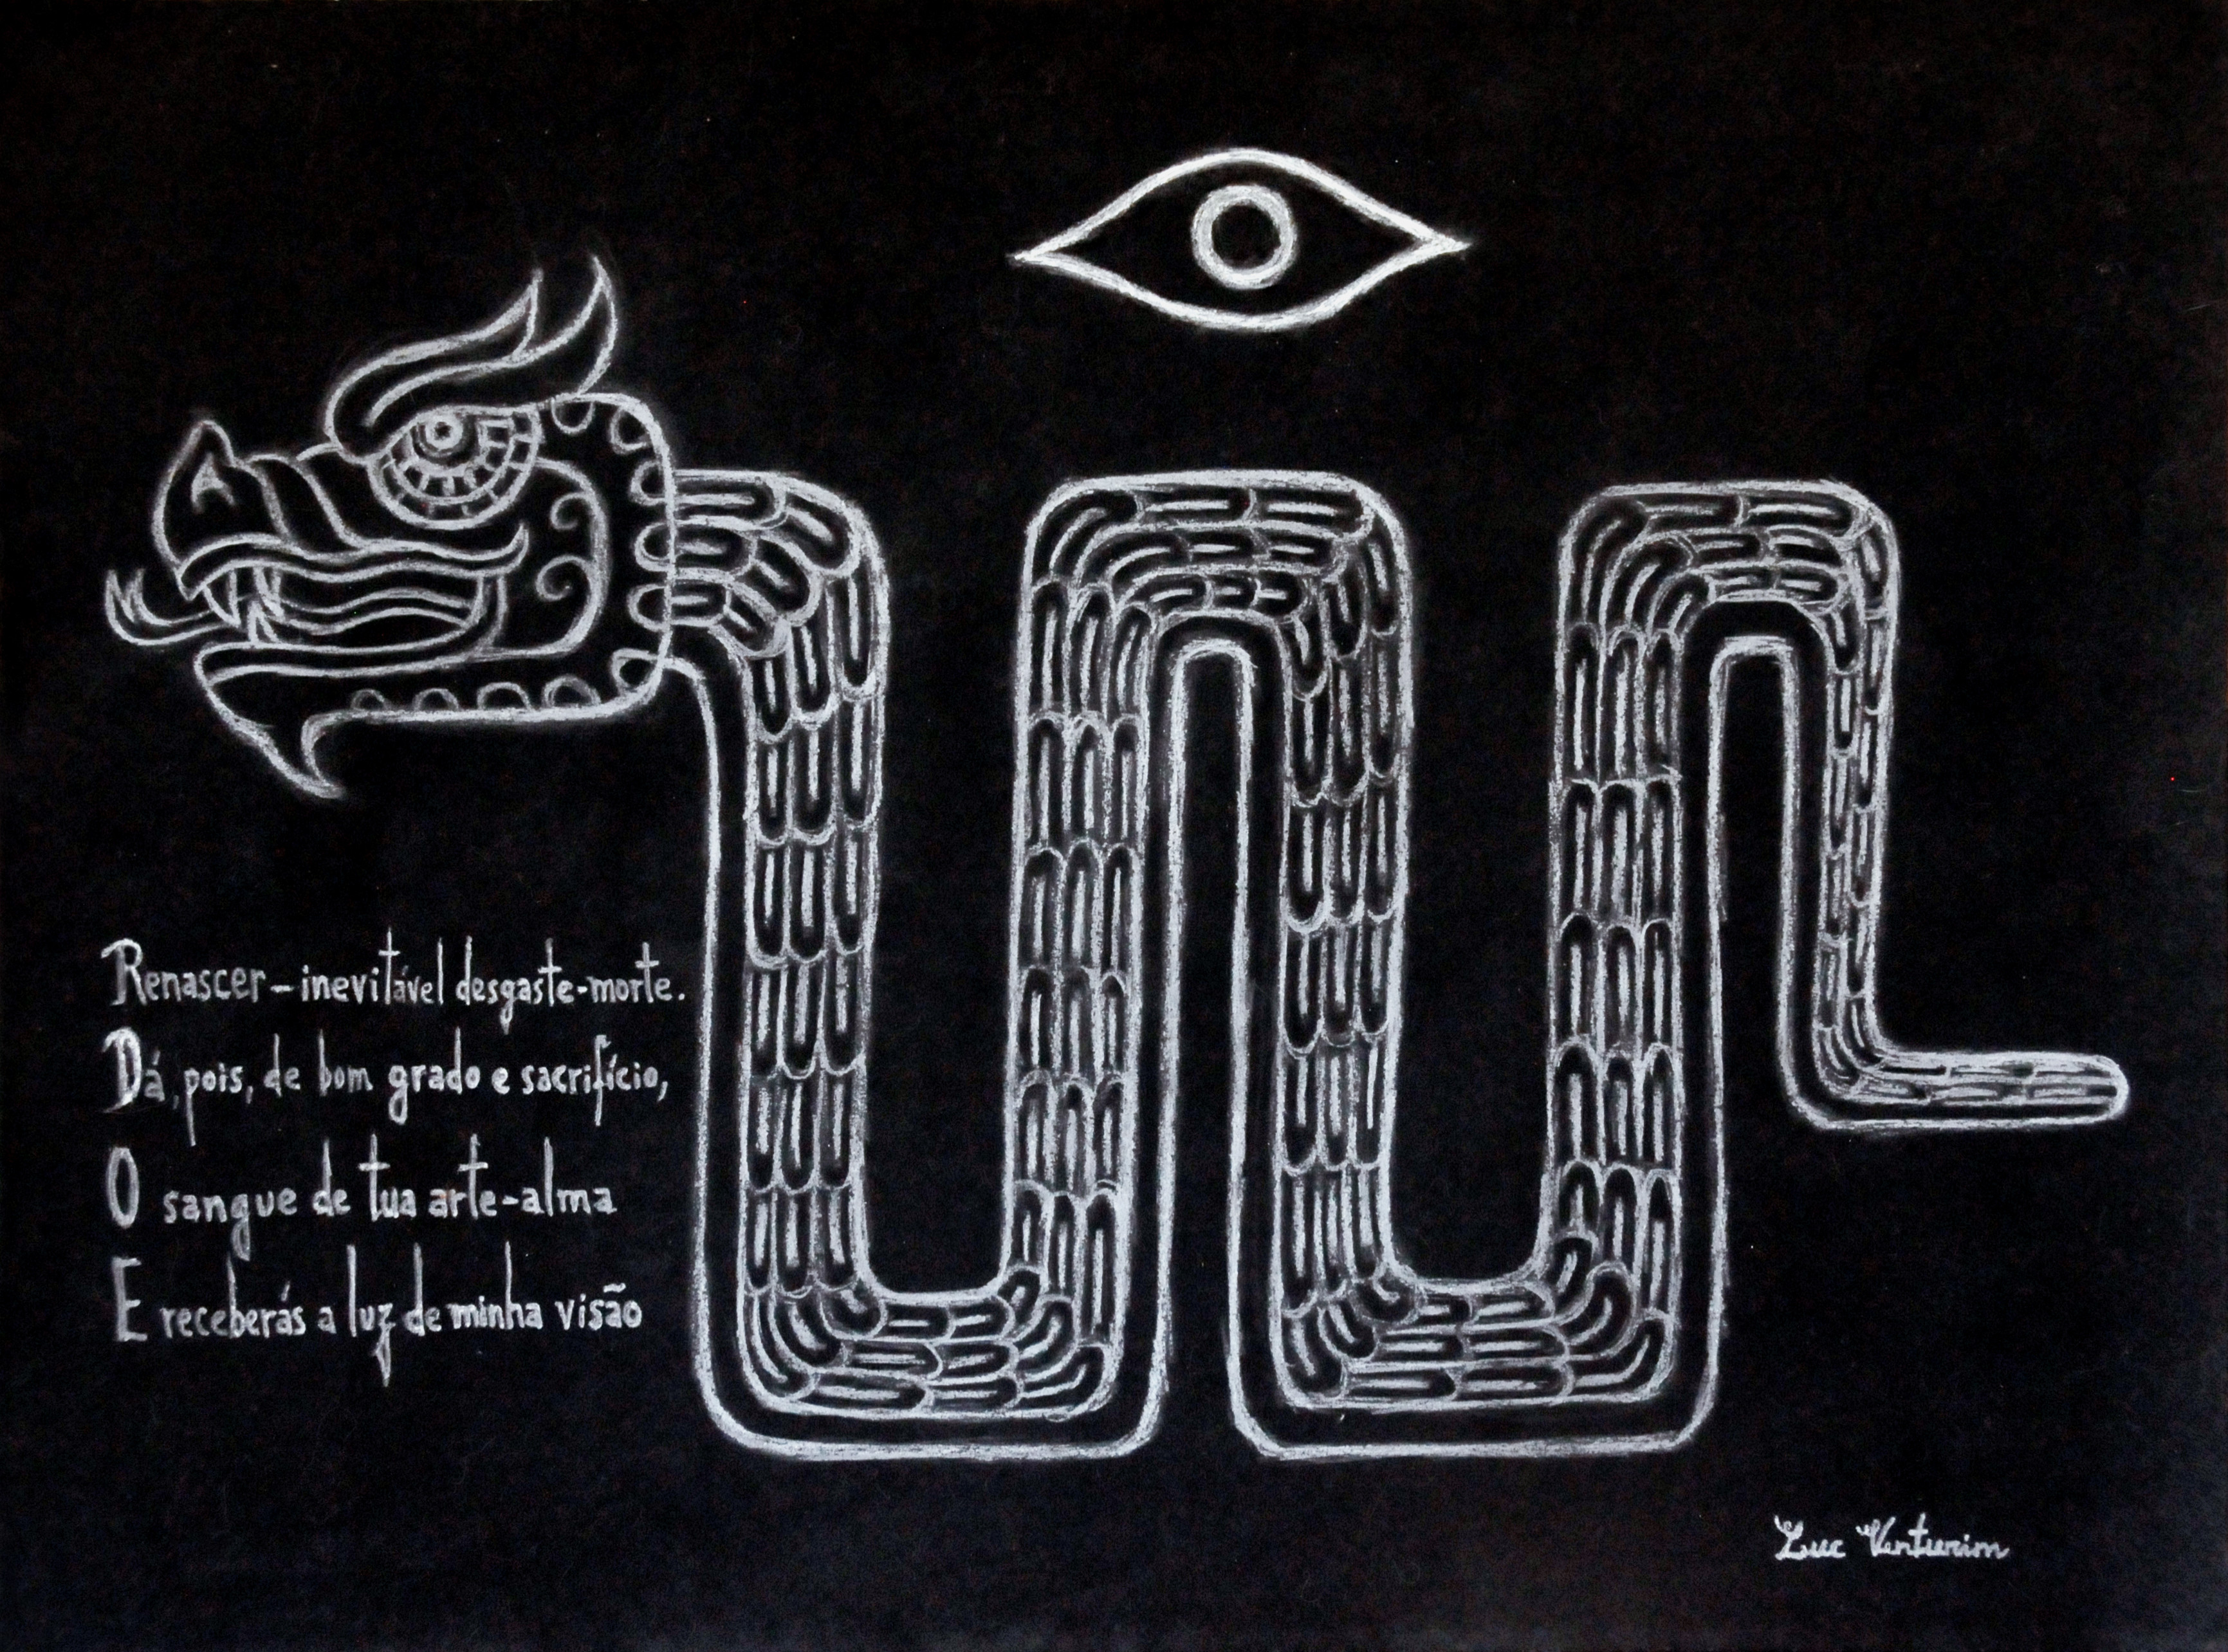 Renascer – inevitável desgaste-morte.
Dá, pois, de bom grado e sacrifício,
O sangue de tua arte-alma
E receberás a luz de minha visão
Luc Venturim